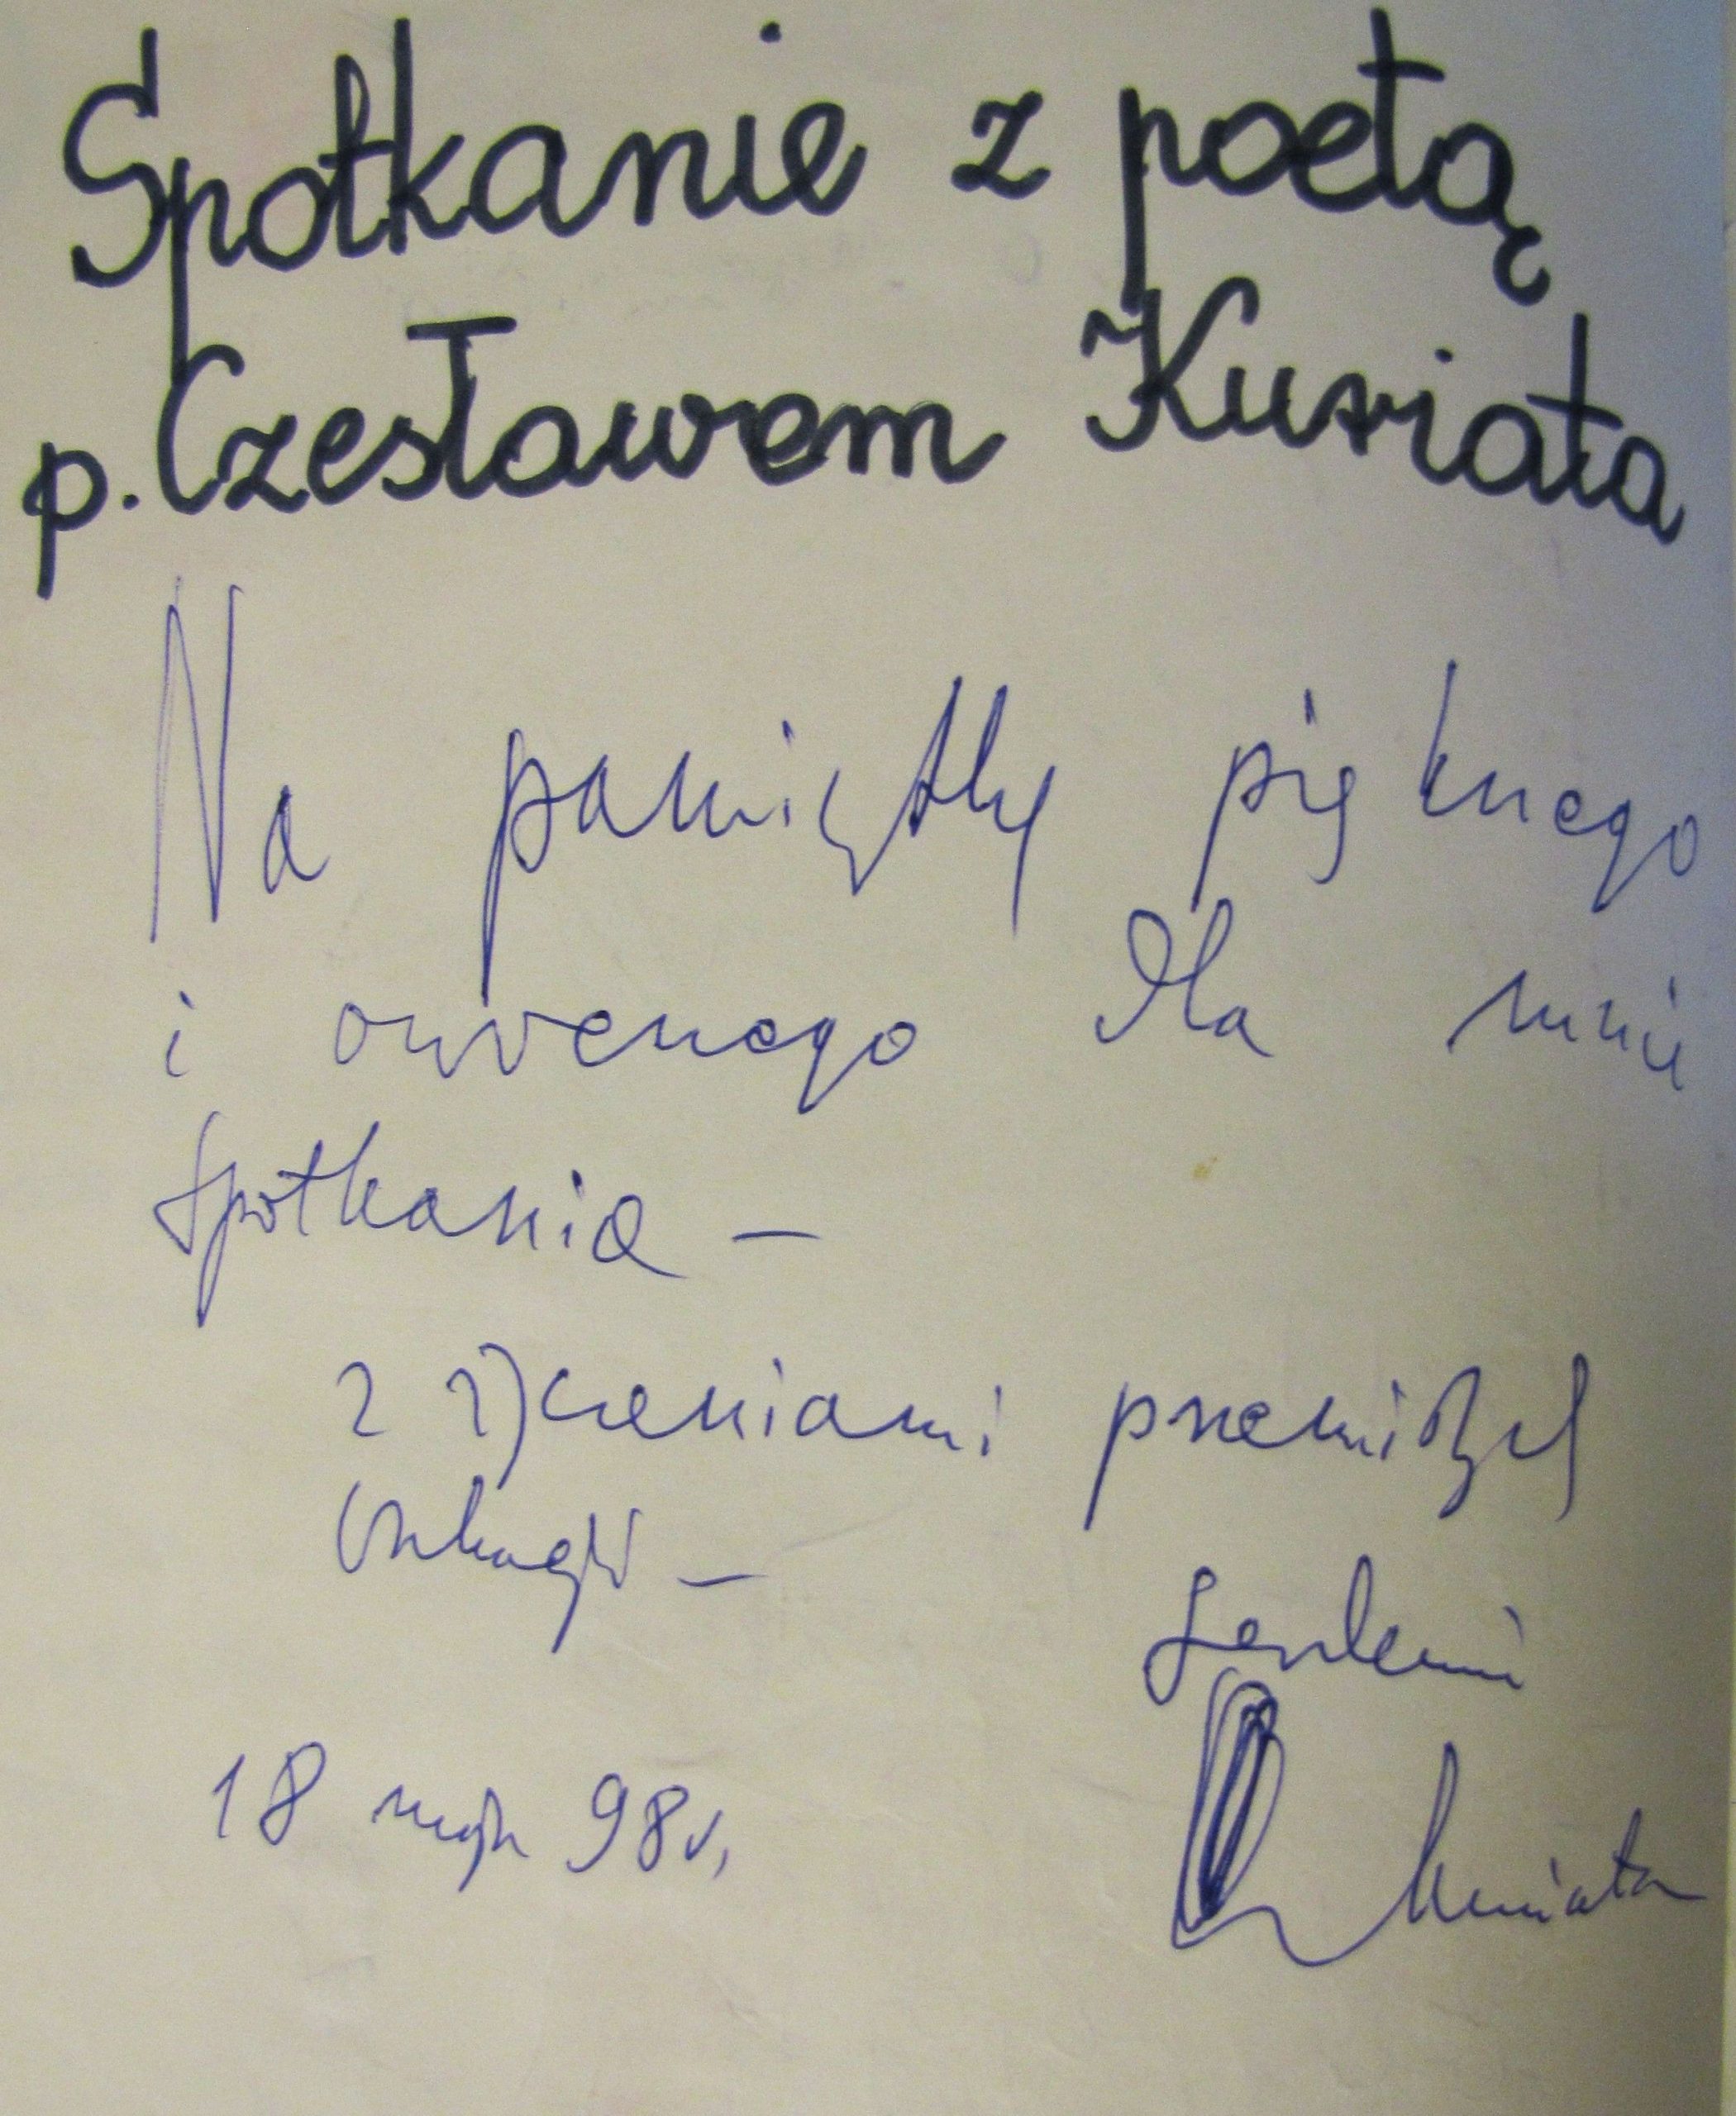 Spotkanie z poetą
p. Czesławem Kuriata
Na pamiątkę pięknego
i owocnego dla mnie
spotkania -
z życzeniami przemiłych
wakacji -
serdecznie
18 maja 98 r.
Kuriata